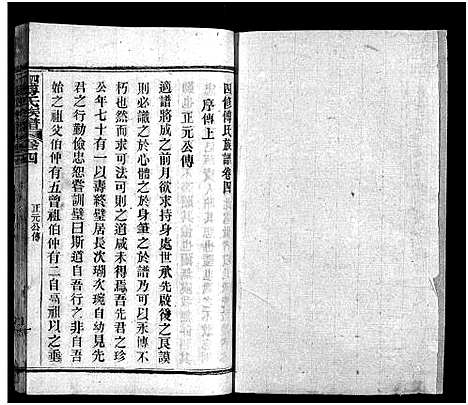 四修傅氏族譜卷四
序傳上
正元公傳
適譜將成之前月欲求持身處世承先啟後之良謨
則必識之於心體之於身筆之於譜乃可以永傳不
朽也然而三代以下之道咸未得焉吾先君之珍
公年七十有一以壽終璧居長次瑚次琬自幼見先
君之行勤儉忠恕嘗訓璧曰斯道自吾行之非自吾
始之祖父伯仲有五曾祖伯仲有二自高祖以之垂
正元公傳